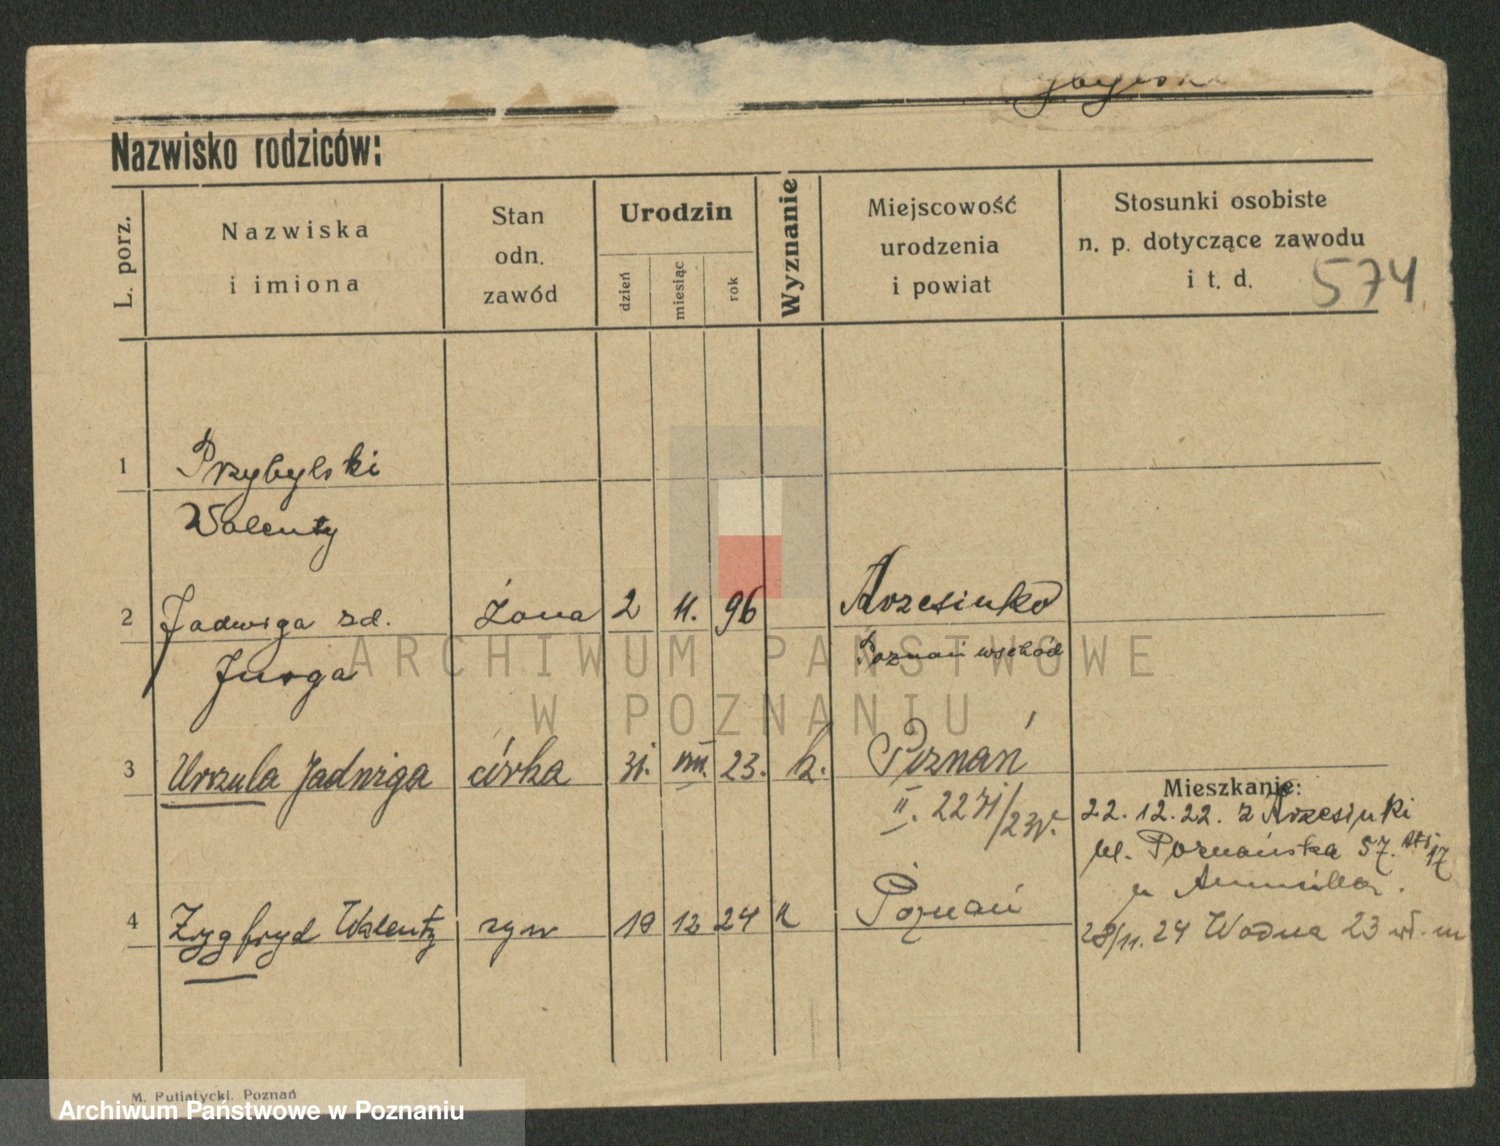 Nazwisko rodziców:
L. porz.
Nazwiska
i imiona
Stan
odn.
zawód
Urodzin
dzień
miesiąc
rok
Wyznanie
Miejscowość
urodzenia
i powiat
Stosunki osobiste
n. p. dotyczące zawodu
i t. d.
574
1 Przybylski
Walenty
2 Jadwiga zd. żona 2 11. 96 Krzesinko
Jurga Poznań wschód
3 Urszula Jadwiga córka 31. VIII. 23. k. Poznań
II. 2271/23
Mieszkanie:
22.12.22. z Krzesinki
ul. Poznańska 57. 17
4 Zygfryd Walenty syn 19 12 24 k Poznań
28/11. 24 Wodna 23 wł. m
M. Putiatycki, Poznań
ARCHIWUM PAŃSTWOWE
W POZNANIU
Archiwum Państwowe w Poznaniu